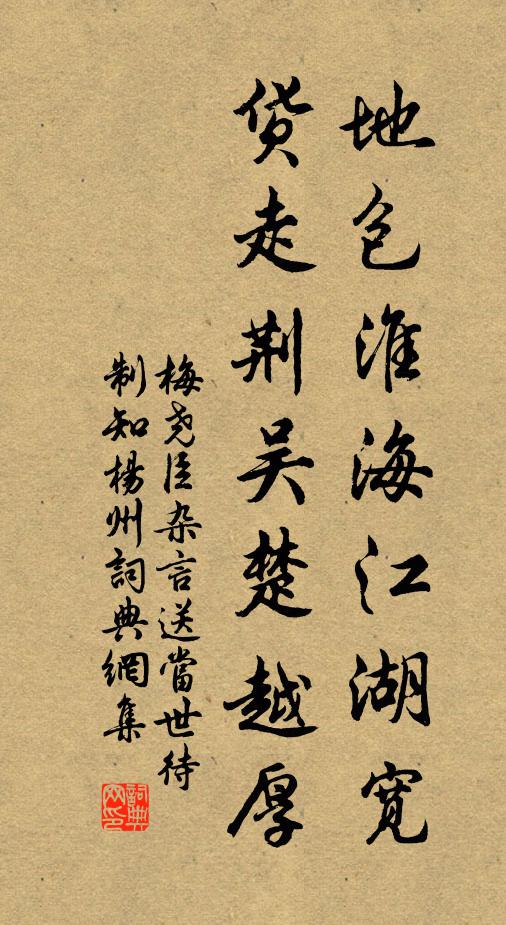 地包淮海江湖宽
货走荆吴楚越厚
梅尧臣杂言送當世待
制知楊州詞典網集
詞典網印